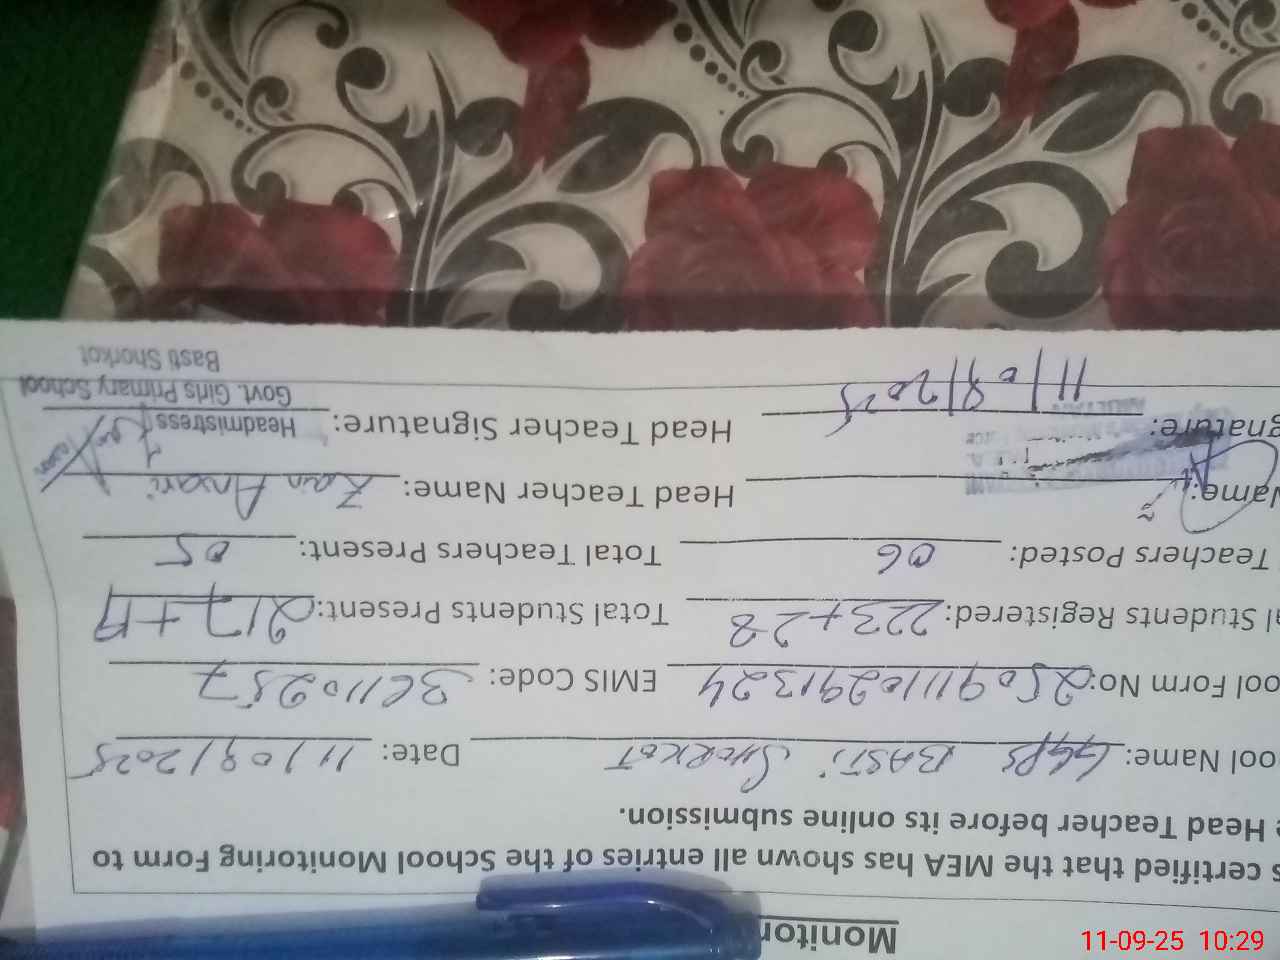 Monitor
s certified that the MEA has shown all entries of the School Monitoring Form to
e Head Teacher before its online submission.
ool Name: GGPS BASTi SHORKOT Date: 11/09/2025
ool Form No: 25091110291324 EMIS Code: 36110257
al Students Registered: 223+28 Total Students Present: 217+19
Teachers Posted: 06 Total Teachers Present: 05
Name: Head Teacher Name: Zain Ansari
gnature: Head Teacher Signature:
11/09/2025
Headmistress
Govt. Girls Primary School
Basti Shorkot
11-09-25 10:29